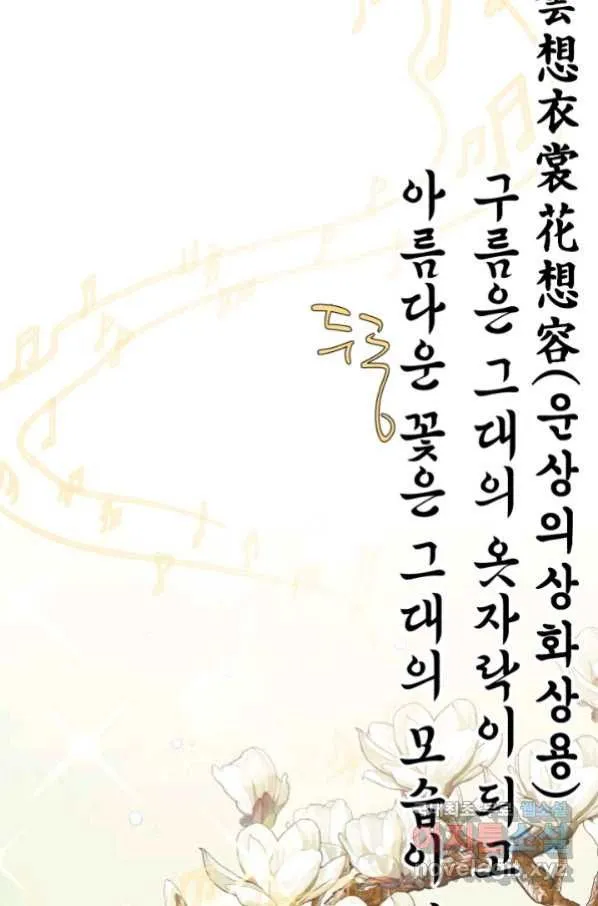 雲想衣裳花想容(운상의상화상용)
구름은 그대의 옷자락이 되고
아름다운 꽃은 그대의 모습이
두룽
novelagit.xyz